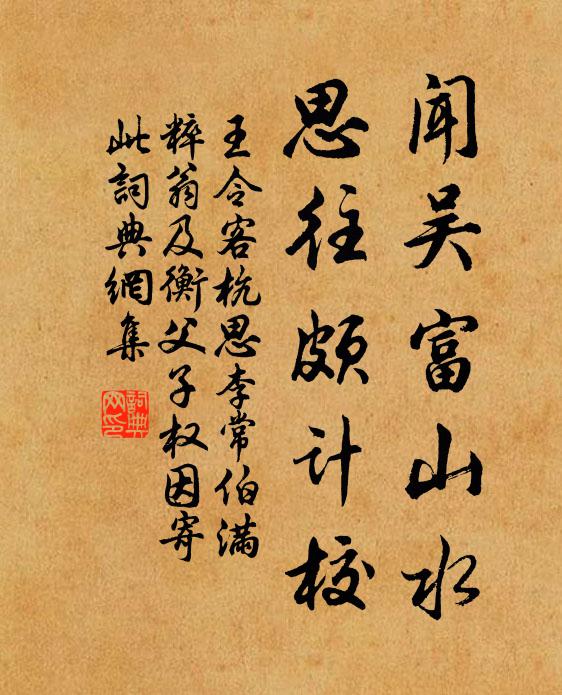 闻吴富山水
思往颇计校
王令客杭思李常伯满
粹翁及衡父子权因寄
此詞典網集
詞典网印